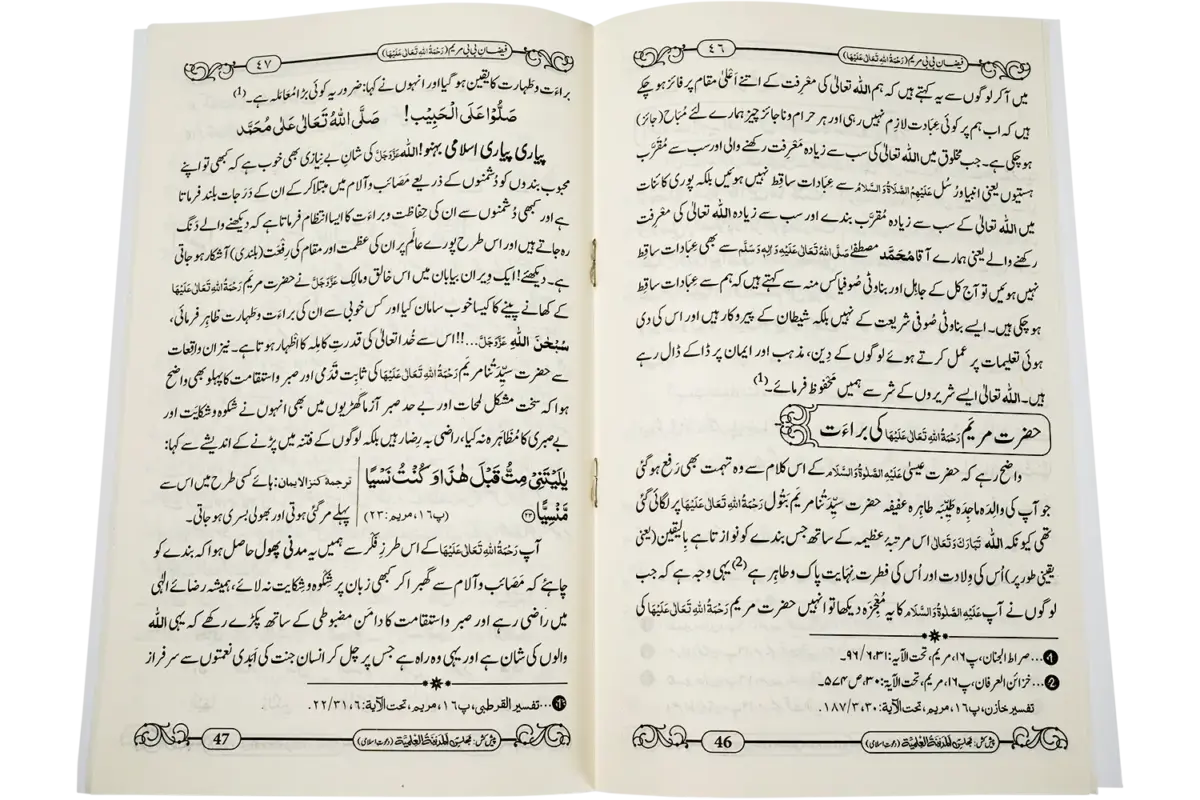 فیضانِ بی بی مریم (رَحْمَۃُ اللہِ تَعَالٰی عَلَیْہَا)
٤٦
میں آ کر لوگوں سے یہ کہتے ہیں کہ ہم اللہ تعالیٰ کی معرفت کے اتنے اَعْلیٰ مقام پر فائز ہو چکے
ہیں کہ اب ہم پر کوئی عِبادت لازِم نہیں رہی اور ہر حرام و ناجائز چیز ہمارے لئے مُبَاح (جائز)
ہو چکی ہے۔ جب مخلوق میں اللہ تعالیٰ کی سب سے زیادہ مَعْرِفت رکھنے والی اور سب سے مُقَرَّب
ہستیوں یعنی انبیا و رُسُل عَلَیْہِمُ الصَّلَاۃُ وَالسَّلَام سے عِبادات ساقِط نہیں ہوئیں بلکہ پوری کائنات
میں اللہ تعالیٰ کے سب سے زیادہ مُقَرَّب بندے اور سب سے زیادہ اللہ تعالیٰ کی مَعْرِفت
رکھنے والے یعنی ہمارے آقا مُحَمَّد مصطفےٰ صَلَّی اللہُ تَعَالٰی عَلَیْہِ وَاٰلِہٖ وَسَلَّم سے بھی عِبادات ساقِط
نہیں ہوئیں تو آج کل کے جاہِل اور بناوٹی صُوفیا کس منہ سے کہتے ہیں کہ ہم سے عِبادات ساقِط
ہو چکی ہیں۔ ایسے بناوٹی صُوفی شریعت کے نہیں بلکہ شیطان کے پیروکار ہیں اور اس کی دی
ہوئی تعلیمات پر عمل کرتے ہوئے لوگوں کے دِین، مذہب اور ایمان پر ڈاکے ڈال رہے
ہیں۔ اللہ تعالیٰ ایسے شریروں کے شر سے ہمیں مَحْفوظ فرمائے۔(1)
حضرت مریم رَحْمَۃُ اللہِ تَعَالٰی عَلَیْہَا کی براءَت
واضح رہے کہ حضرت عیسیٰ عَلَیْہِ الصَّلٰوۃُ وَالسَّلَام کے اس کلام سے وہ تہمت بھی رَفع ہو گئی
جو آپ کی والِدہ ماجِدہ طَیِّبَہ طاہِرہ عفیفہ حضرت سیِّدَتُنا مریَم بَتُول رَحْمَۃُ اللہِ تَعَالٰی عَلَیْہَا پر لگائی گئی
تھی کیونکہ اللہ تَبَارَکَ وَتَعَالٰی اس مرتبۂ عظیمہ کے ساتھ جس بندے کو نوازتا ہے بِالیقین (یعنی
یقینی طور پر) اُس کی وِلادت اور اُس کی فطرت نِہایت پاک و طاہِر ہے(2) یہی وجہ ہے کہ جب
لوگوں نے آپ عَلَیْہِ الصَّلٰوۃُ وَالسَّلَام کا یہ مُعْجِزَہ دیکھا تو انہیں حضرت مریم رَحْمَۃُ اللہِ تَعَالٰی عَلَیْہَا کی
❶…صراط الجنان، پ١٦، مریم، تحت الآیہ:٣١، ٦/٩٦۔
❷…خزائن العرفان، پ١٦، مریم، تحت الآیۃ:٣٠، ص٥٧٤۔
تفسیر خازن، پ١٦، مریم، تحت الآیۃ:٣٠، ٣/١٨٧.
پیش کش: مجلس المدینۃ العلمیۃ (دعوتِ اسلامی)
46
فیضانِ بی بی مریم (رَحْمَۃُ اللہِ تَعَالٰی عَلَیْہَا)
٤٧
براءَت و طہارت کا یقین ہو گیا اور انہوں نے کہا: ضرور یہ کوئی بڑا مُعَامَلہ ہے۔(1)
صَلُّوْا عَلَی الْحَبِیْب! صَلَّی اللہُ تَعَالٰی عَلٰی مُحَمَّد
پیاری پیاری اسلامی بہنو! اللہ عَزَّوَجَلَّ کی شانِ بے نیازی بھی خوب ہے کہ کبھی تو اپنے
محبوب بندوں کو دُشمنوں کے ذریعے مَصَائب و آلام میں مبتلا کر کے ان کے دَرَجات بلند فرماتا
ہے اور کبھی دُشمنوں سے ان کی حفاظت و براءَت کا ایسا انتظام فرماتا ہے کہ دیکھنے والے دَنگ
رہ جاتے ہیں اور اس طرح پورے عالَم پر ان کی عظمت اور مقام کی رِفْعَت (بلندی) آشکار ہو جاتی
ہے۔ دیکھئے! ایک ویران بیابان میں اس خالق و مالِک عَزَّوَجَلَّ نے حضرت مریم رَحْمَۃُ اللہِ تَعَالٰی عَلَیْہَا
کے کھانے پینے کا کیسا خوب سامان کیا اور کس خوبی سے ان کی براءَت و طہارت ظاہِر فرمائی،
سُبْحٰنَ اللہِ عَزَّوَجَلَّ...!! اس سے خُدا تعالیٰ کی قدرتِ کامِلہ کا اِظہار ہوتا ہے۔ نیز ان واقعات
سے حضرت سیِّدَتُنا مریَم رَحْمَۃُ اللہِ تَعَالٰی عَلَیْہَا کی ثابِت قَدَمی اور صبر و استقامت کا پہلو بھی واضح
ہوا کہ سخت مشکل لمحات اور بے حد صبر آزما گھڑیوں میں بھی انہوں نے شکوہ و شکایَت اور
بے صبری کا مُظَاہَرہ نہ کیا، راضی بہ رِضا رہیں بلکہ لوگوں کے فتنہ میں پڑنے کے اندیشے سے کہا:
یٰلَیْتَنِیْ مِتُّ قَبْلَ هٰذَا وَ كُنْتُ نَسْیًا
مَّنْسِیًّا ﴿٢٣﴾
ترجمۂ کنز الایمان: ہائے کسی طرح میں اس سے
پہلے مر گئی ہوتی اور بھولی بسری ہو جاتی۔ (پ١٦، مریم:٢٣)
آپ رَحْمَۃُ اللہِ تَعَالٰی عَلَیْہَا کے اس طرزِ فِکْر سے ہمیں یہ مدنی پھول حاصل ہوا کہ بندے کو
چاہئے کہ مَصَائب و آلام سے گھبرا کر کبھی زبان پر شِکْوَہ و شِکایَت نہ لائے، ہمیشہ رضائے الٰہی
میں رَاضی رہے اور صبر و استقامت کا دامَن مضبوطی کے ساتھ پکڑے رکھے کہ یہی اللہ
والوں کی شان ہے اور یہی وہ راہ ہے جس پر چل کر انسان جنت کی اَبَدی نعمتوں سے سرفراز
❶…تفسیر القرطبی، پ١٦، مریم، تحت الآیۃ:٦، ٣١/٢٢.
پیش کش: مجلس المدینۃ العلمیۃ (دعوتِ اسلامی)
47